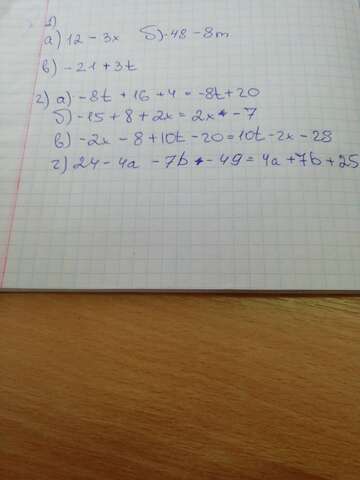 1)
а) 12 - 3x б) -48 - 8m
в) -21 + 3t
2) а) -8t + 16 + 4 = -8t + 20
б) -15 + 8 + 2x = 2x - 7
в) -2x - 8 + 10t - 20 = 10t - 2x - 28
г) 24 - 4a - 7b - 49 = 4a + 7b + 25